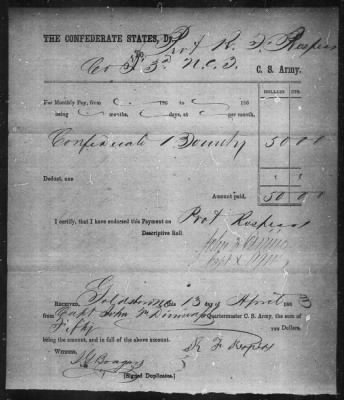 THE CONFEDERATE STATES, Dr.
To Pvt R. F. Respess
Co I 3d N.C.T. C. S. Army.
DOLLARS CTS.
For Monthly Pay, from 186 to 186
being months, days, at per month.
Confederate Bounty 50 00
Deduct, one
Amount paid, 50 00
I certify, that I have endorsed this Payment on Pvt Respess
Descriptive Roll.
RECEIVED, Goldsboro 13 day April 186
from Capt John F Quartermaster C. S. Army, the sum of
Fifty Dollars,
being the amount, and in full of the above account.
WITNESS, R F Respess
[Signed Duplicates.]